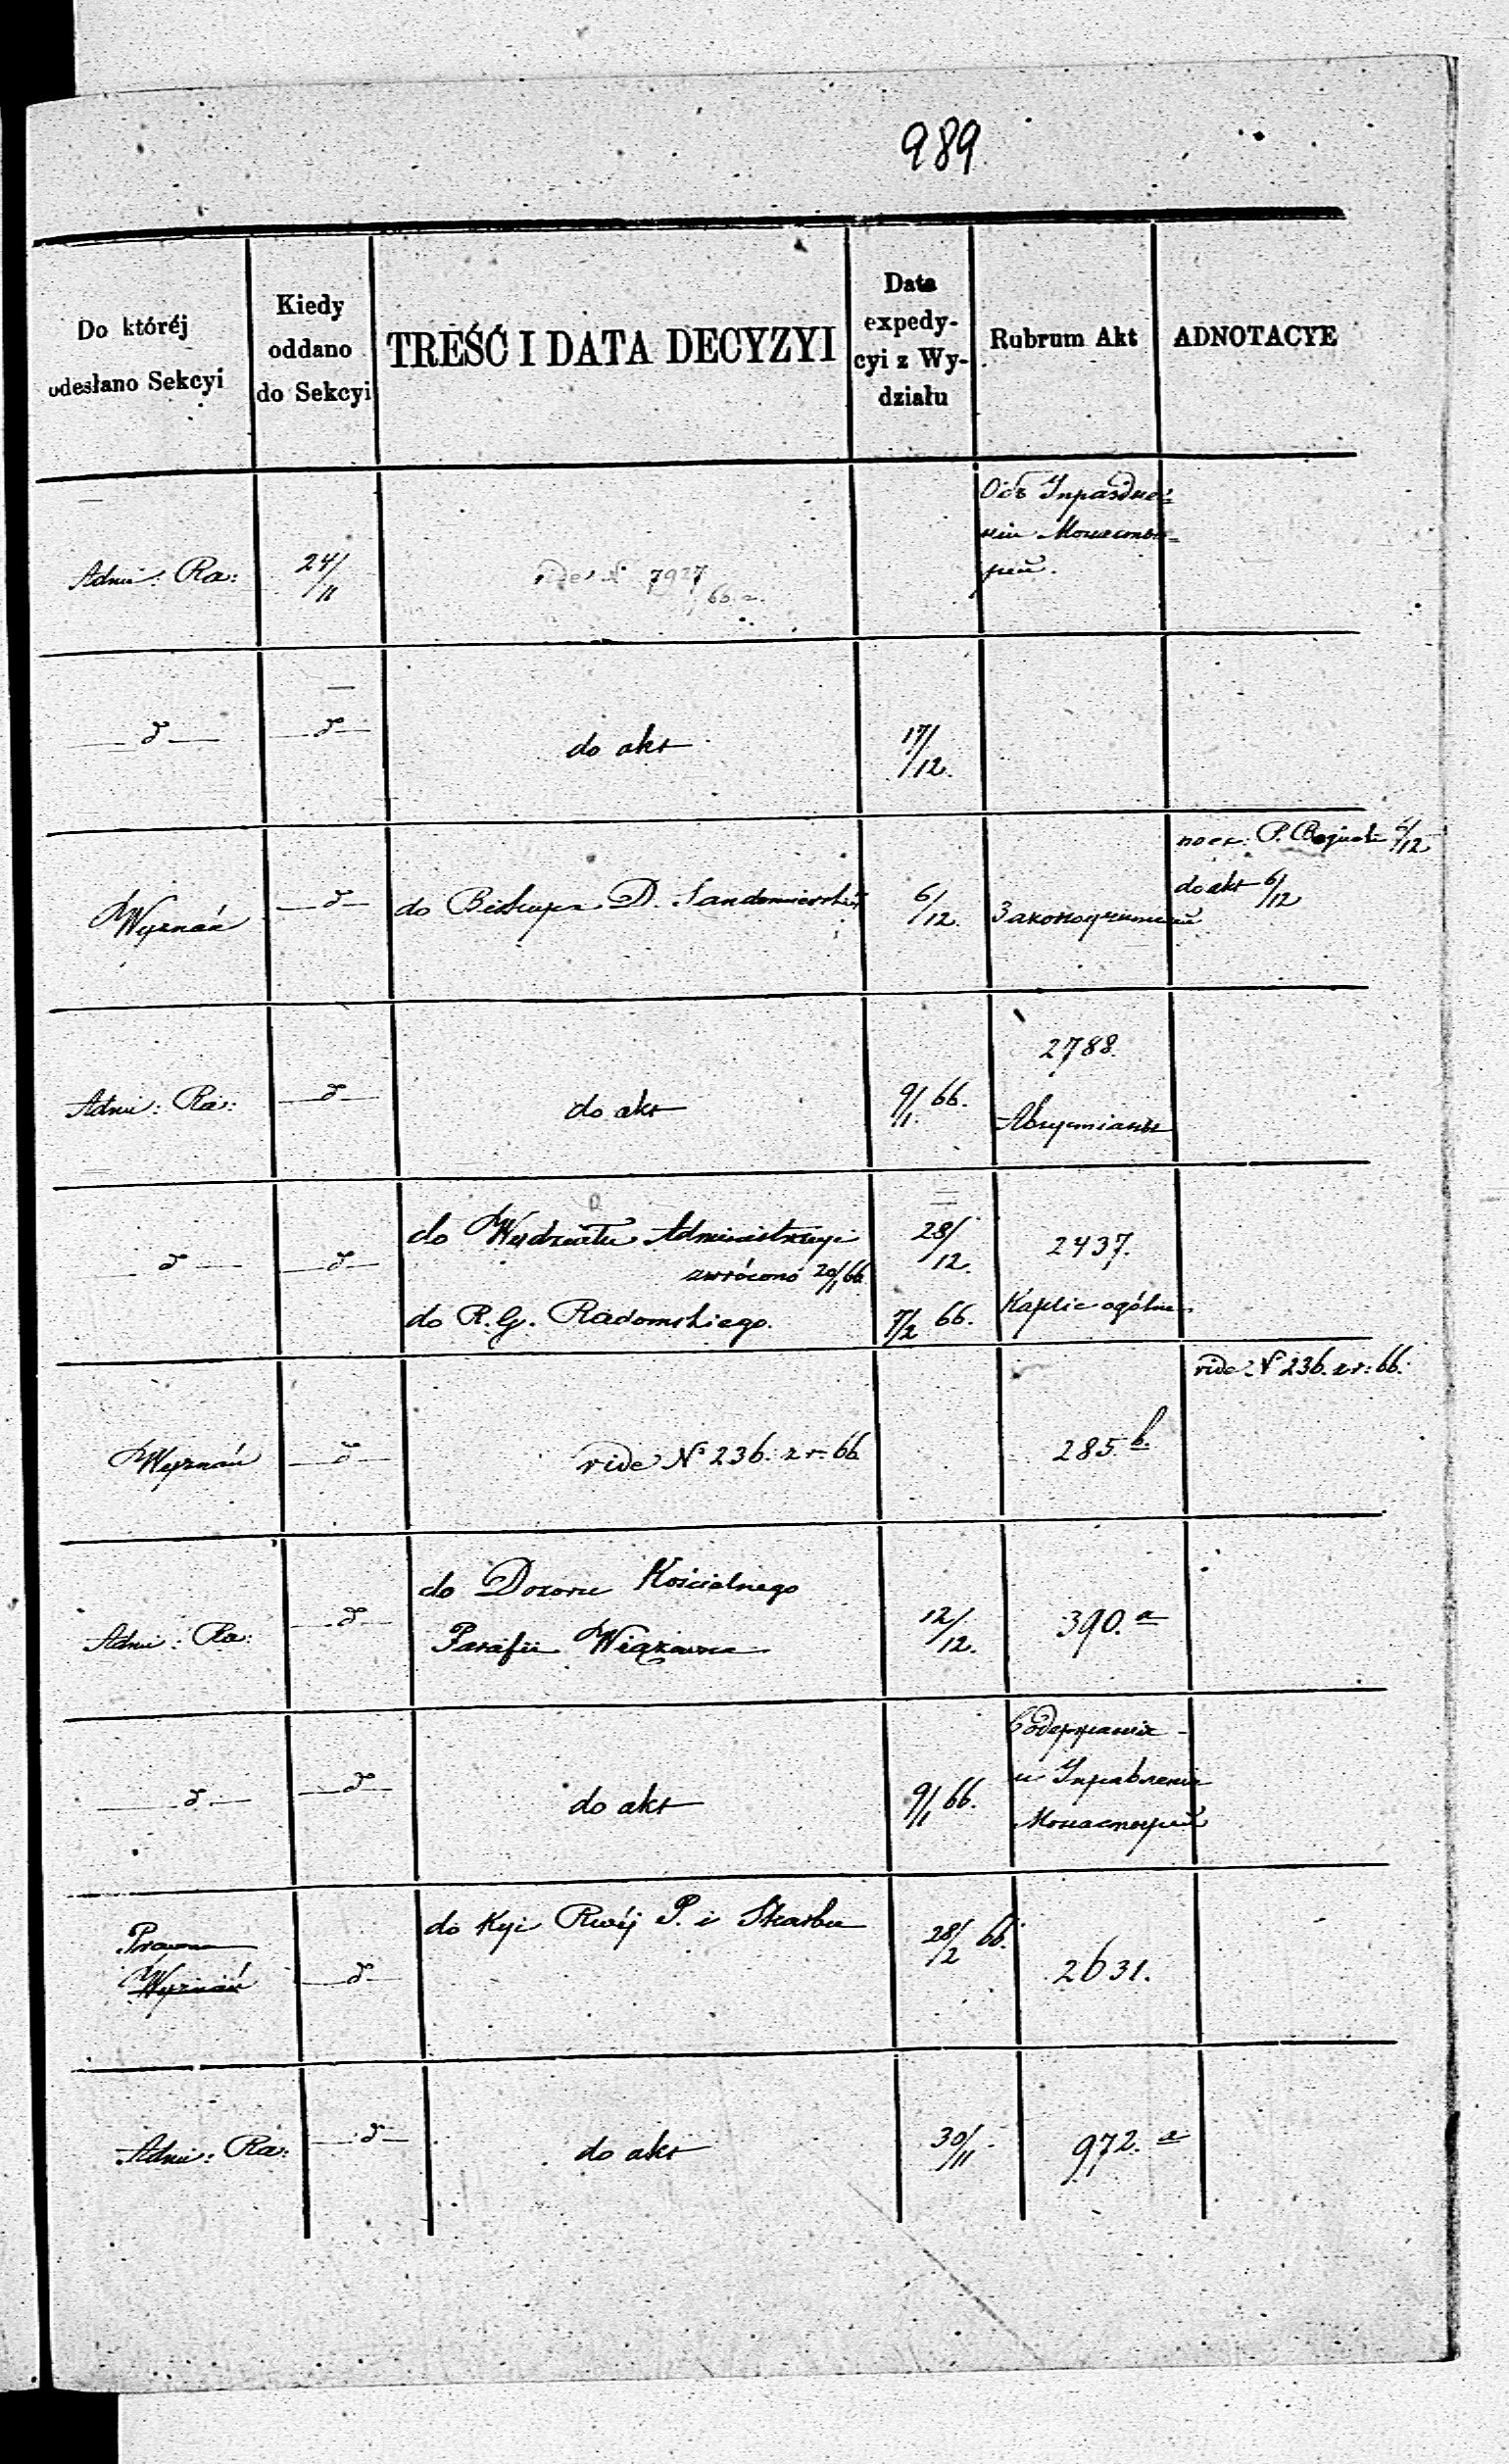 989
Do któréj
odesłano Sekcyi
Kiedy
oddano
do Sekcyi
TREŚĆ I DATA DECYZYI
Data
expedy-
cyi z Wy-
działu
Rubrum Akt
ADNOTACYE
Adm: Ra:
24/11
vide N 7927
Объ Упраздне=
ніи Монасты=
рей.
—d—
—d—
do akt
17/12.
Wyznań
—d—
do Biskupa D. Sandomierskiéj
6/12.
Законоучители
P.
6/12
do akt 6/12
Adm: Ra:
—d—
do akt
9/1 66.
2788.
—d—
—d—
do Wydziału Administracyi
zwrócono 20/1 66
do R. G. Radomskiego.
28/12.
7/2 66.
2437.
Kaplic ogólne
Wyznań
—d—
vide N° 236. z r. 66
285 b.
vide N 236. z r: 66.
Adm: Ra:
—d—
do Dozoru Kościelnego
Parafii Wiązowna
12/12.
390. a
—d—
—d—
do akt
9/1 66.
Содержанія
и Управленія
Монастырей
Prawna
Wyznań
—d—
do Kyi Rwéj P. i Skarbu
28/2 66.
2631.
Adm: Ra:
—d—
do akt
30/11.
972. a